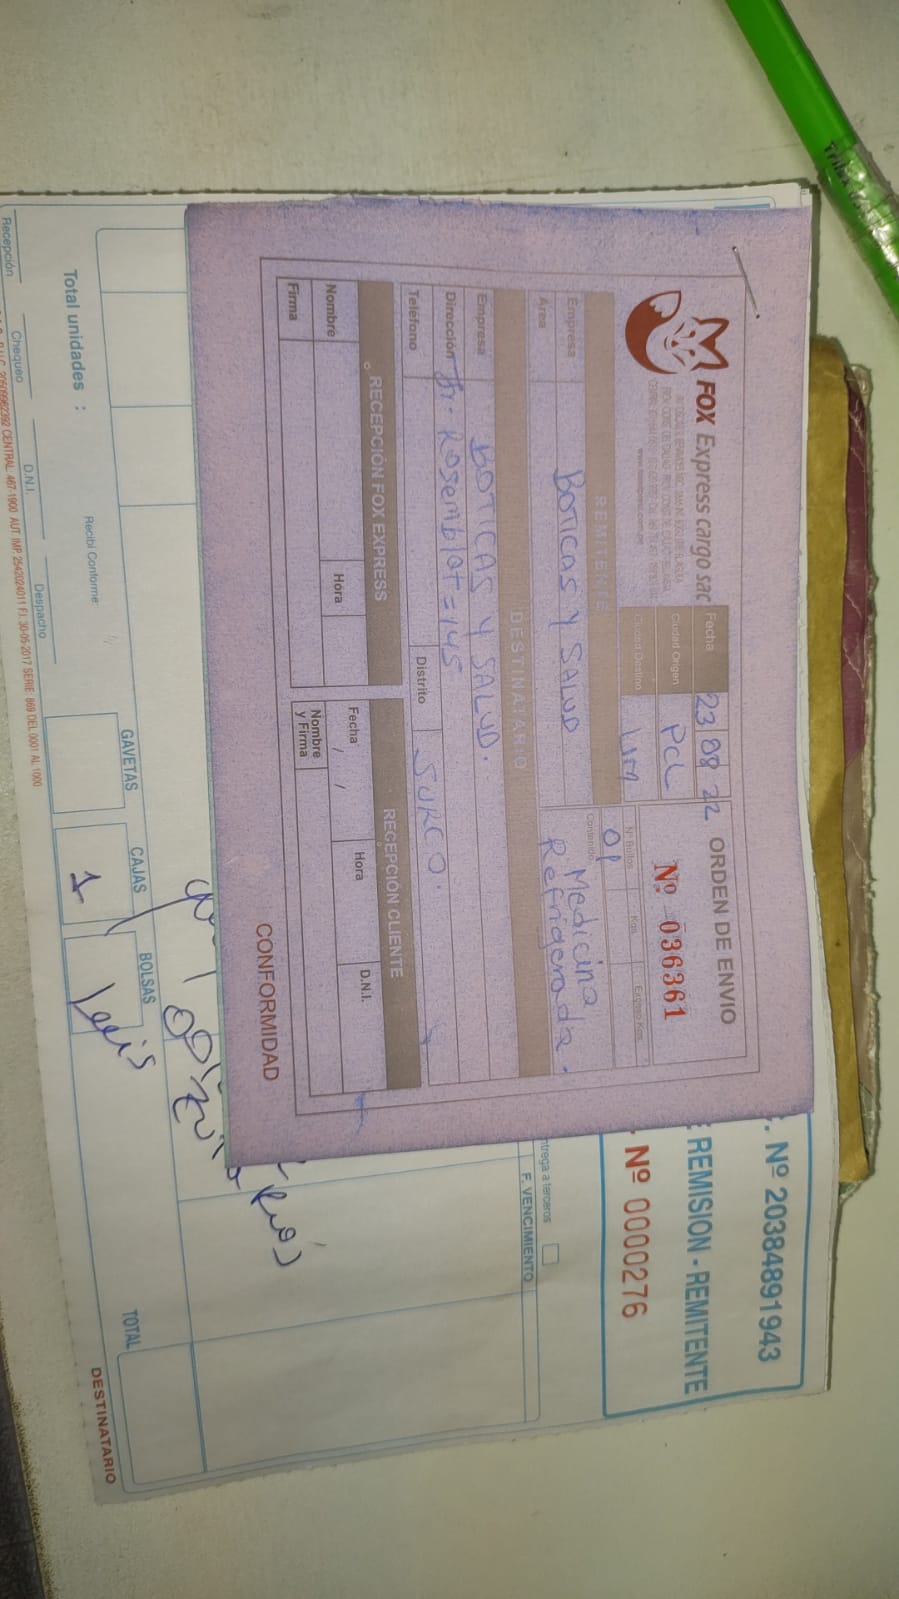 FOX Express cargo sac
Fecha 23 08 22
Ciudad Origen PCL
Ciudad Destino LIM
ORDEN DE ENVIO
Nº 036361
REMITENTE
Empresa BOTICAS Y SALUD
Área
Nº Bultos Kgs. Exceso Kgs.
01
Contenido
Medicina
Refrigerada.
DESTINATARIO
Empresa BOTICAS Y SALUD.
Dirección Jr. Rosemblat = 145
Teléfono Distrito SURCO.
RECEPCIÓN FOX EXPRESS
Nombre Hora
Firma
RECEPCIÓN CLIENTE
Fecha / / Hora D.N.I.
Nombre
y Firma
CONFORMIDAD
. Nº 20384891943
REMISION - REMITENTE
Nº 0000276
trega a terceros
F. VENCIMIENTO
Total unidades :
Recibí Conforme
GAVETAS CAJAS BOLSAS TOTAL
1 Luis
Recepción Chequeo D.N.I. Despacho
DESTINATARIO
CENTRAL: 467-1900 AUT IMP 2542024011 F.I. 30-05-2017 SERIE: 869 DEL 0001 AL 1000